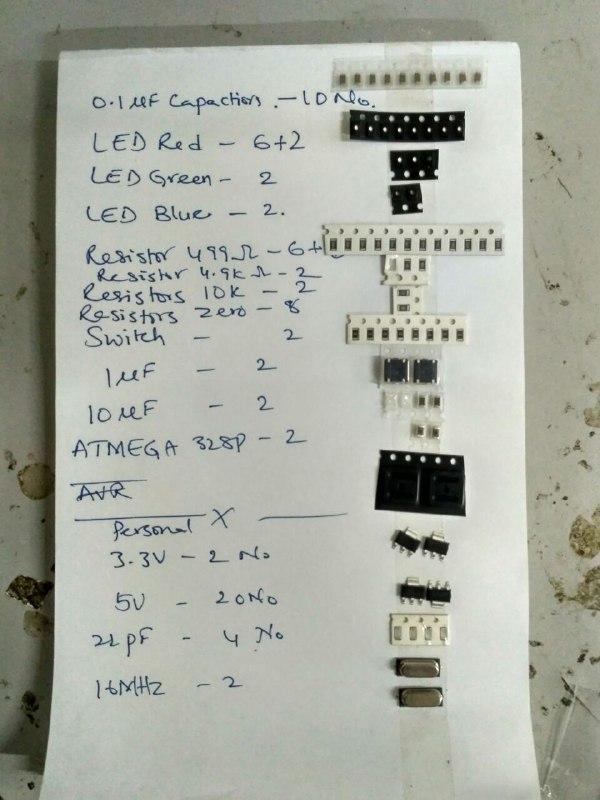 0.1µF Capactiors. - 10 No.
LED Red - 6+2
LED Green - 2
LED Blue - 2.
Resistor 499Ω - 6+
Resistor 4.9k Ω - 2
Resistors 10k - 2
Resistors zero - 8
Switch - 2
1µF - 2
10µF - 2
ATMEGA 328P - 2
AVR
Personal X
3.3V - 2 No
5V - 20No
22pF - 4 No
16MHz - 2